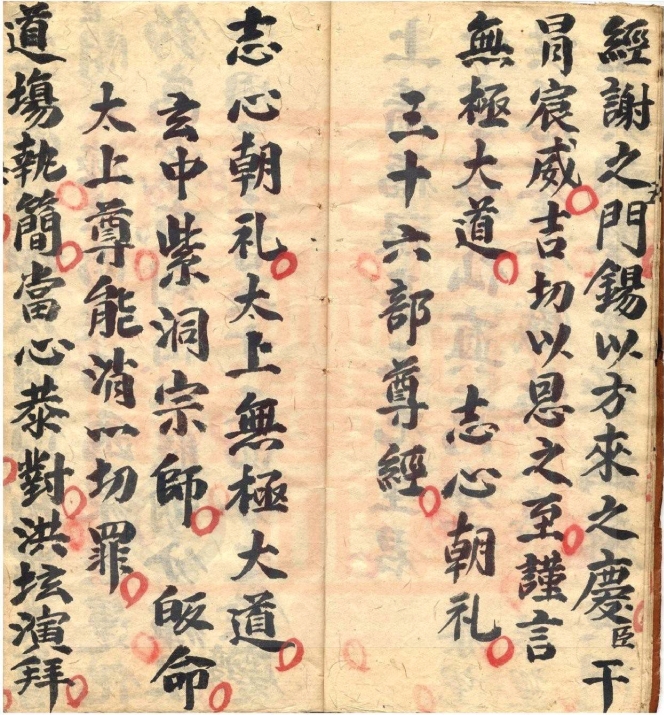 經謝之門錫以方來之慶臣干
冐宸威吉切以恩之至謹言
無極大道 志心朝礼
三十六部尊經
志心朝礼太上無極大道
玄中紫洞宗師 皈命
太上尊能消一切罪
道塲執簡當心恭對洪坛演拜